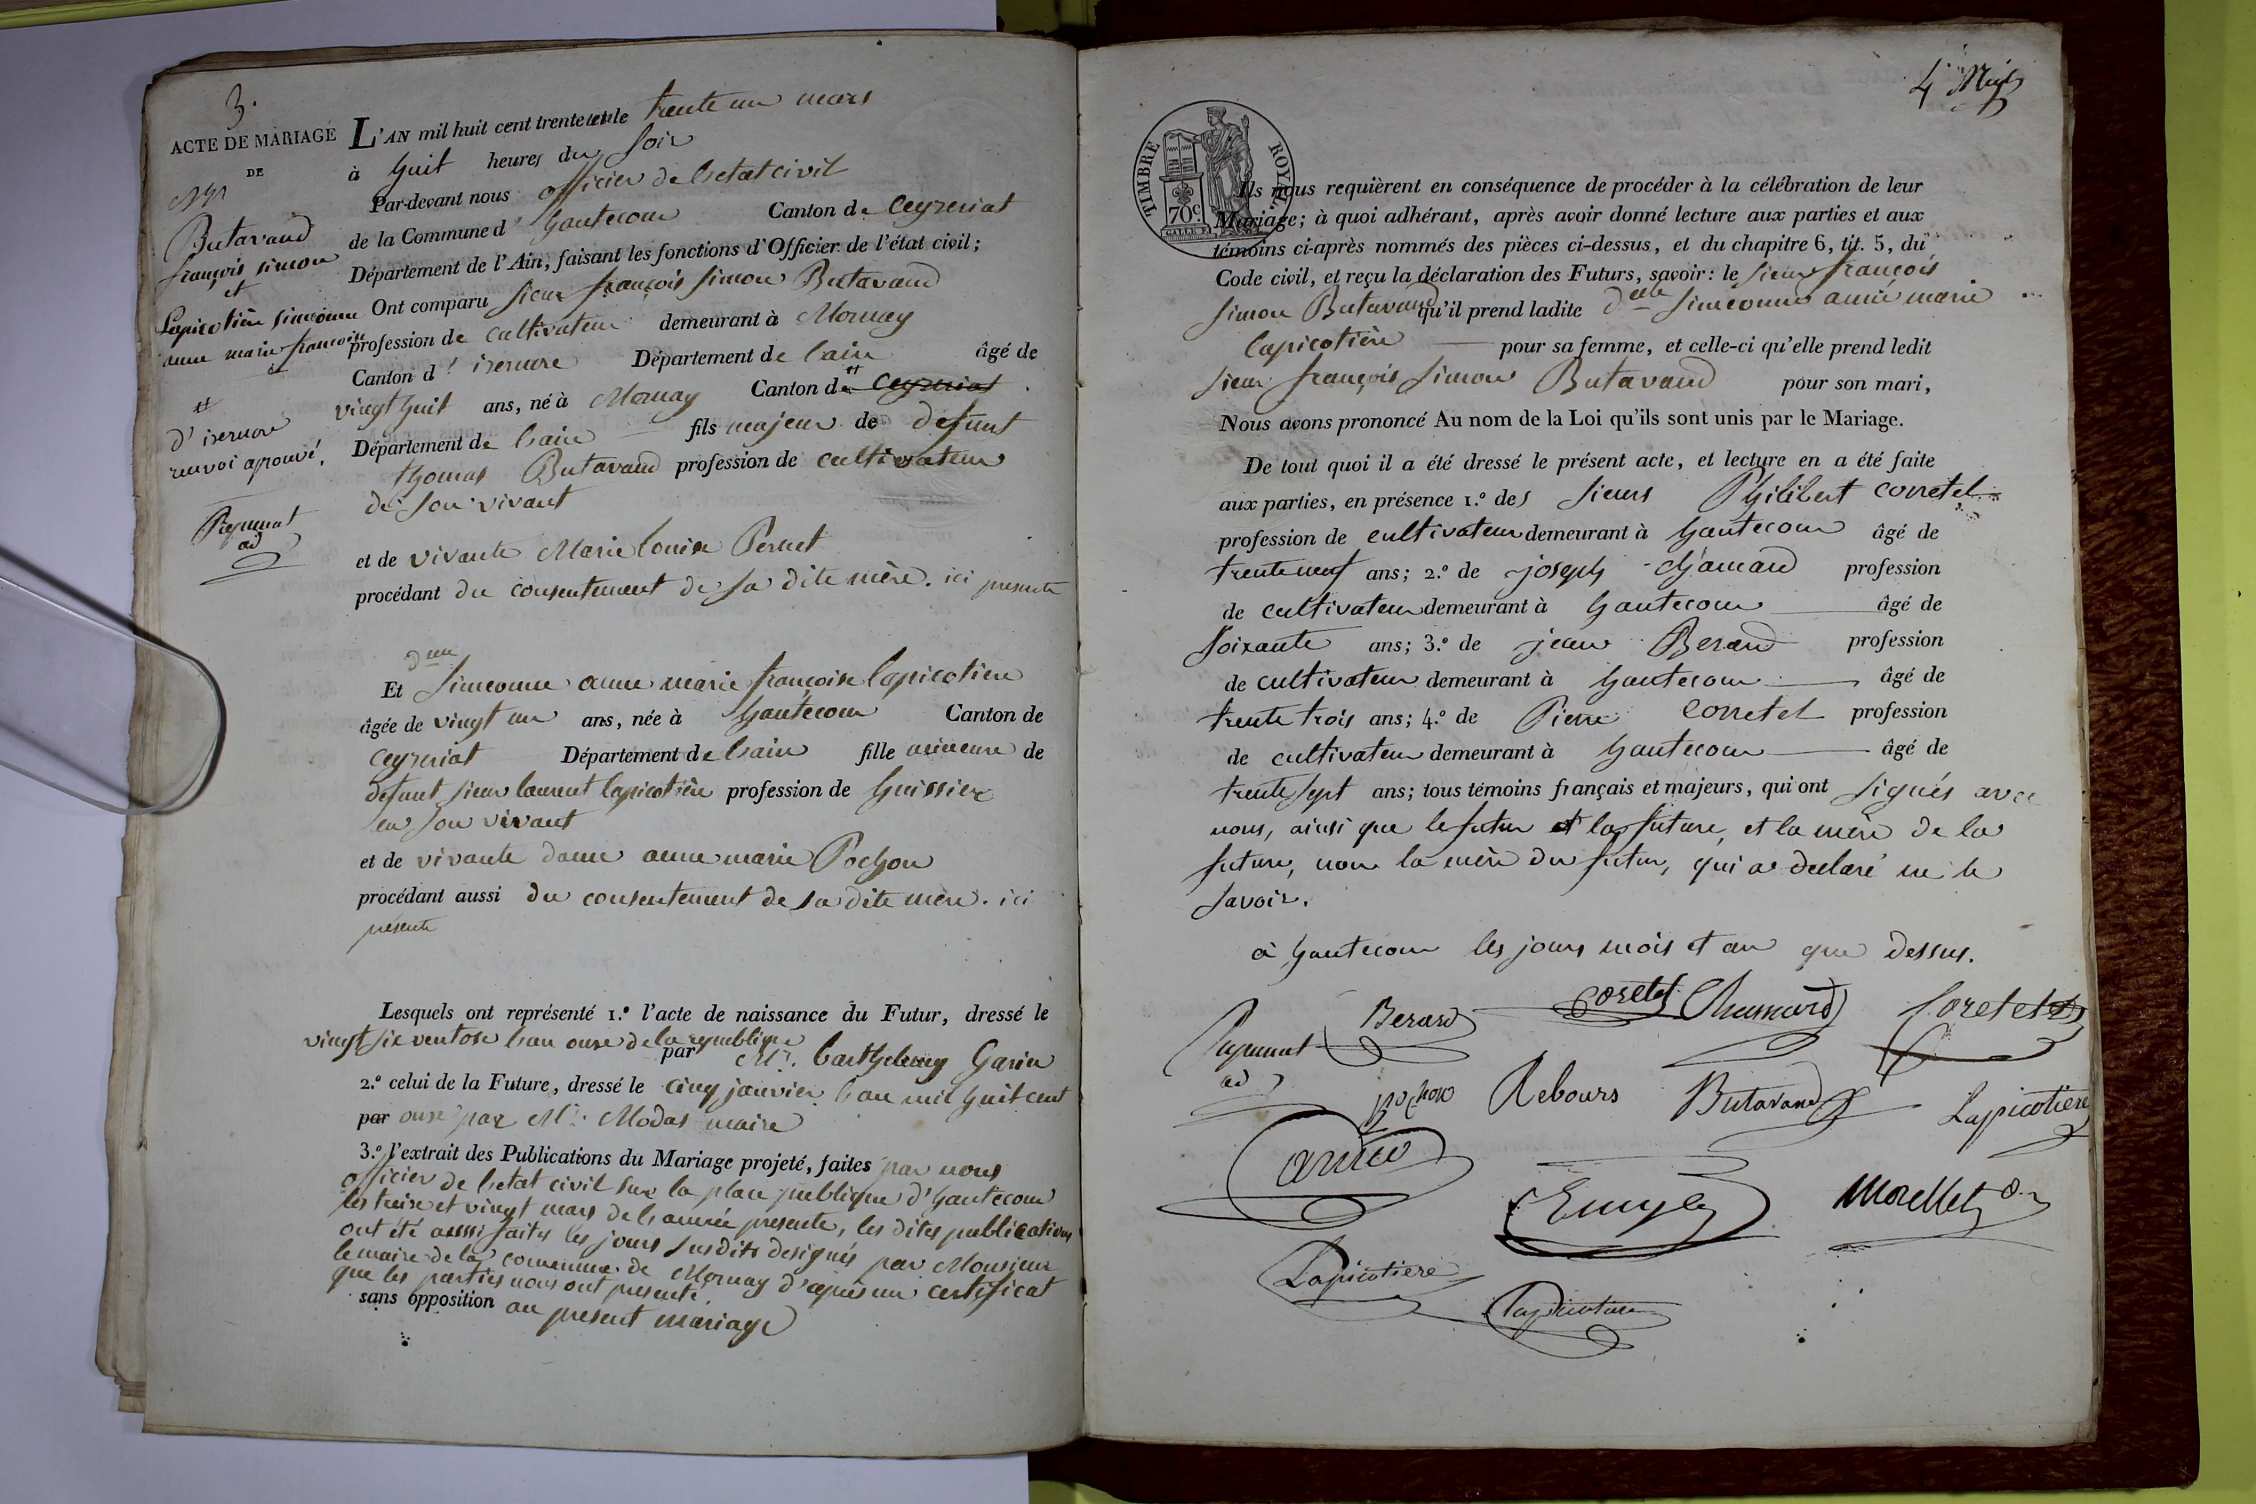 3.
ACTE DE MARIAGE
DE
Butavand
françois simon
et
Lapicotière simeonne
anne marie françoise
d'isernore
renvoi aprouvé.
Papunat
ad
L'AN mil huit cent trente et le trente un mars
à huit heures du soir
Par-devant nous officier de letat civil
de la Commune d'hautecour Canton de Ceyzeriat
Département de l'Ain, faisant les fonctions d'Officier de l'état civil;
Ont comparu sieur françois simon Butavand
profession de cultivateur demeurant à Mornay
Canton d'isernore Département de lain âgé de
vingt huit ans, né à Mornay Canton de Ceyzeriat
Département de lain fils majeur de defunt
thomas Butavand profession de cultivateur
de son vivant
et de vivante Marie louise Pernet
procédant du consentement de sa dite mère. ici presente
Et simeonne anne marie françoise lapicotiere
âgée de vingt un ans, née à hautecour Canton de
Ceyzeriat Département de lain fille mineure de
defunt sieur laurent lapicotière profession de huissier
en son vivant
et de vivante dame anne marie Pochon
procédant aussi du consentement de sa dite mère. ici
présente
Lesquels ont représenté 1.º l'acte de naissance du Futur, dressé le
vingt six ventose lan onze de la republique
par Mr. barthelemy Garin
2.º celui de la Future, dressé le cinq janvier lan mil huit cent
par onze par Mr. Modas maire
3.º l'extrait des Publications du Mariage projeté, faites par nous
officier de letat civil sur la place publique d'hautecour
les treize et vingt mars de lannée presente, les dites publications
ont été aussi faites les jours susdits designés par Monsieur
le maire de la commune de Mornay d'après un certificat
que les parties nous ont presenté
sans opposition au present mariage
4
TIMBRE ROYAL
70 C
Ils nous requièrent en conséquence de procéder à la célébration de leur
Mariage; à quoi adhérant, après avoir donné lecture aux parties et aux
témoins ci-après nommés des pièces ci-dessus, et du chapitre 6, tit. 5, du
Code civil, et reçu la déclaration des Futurs, savoir: le sieur françois
simon Butavand qu'il prend ladite delle simeonne anne marie
lapicotière pour sa femme, et celle-ci qu'elle prend ledit
sieur françois simon Butavand pour son mari,
Nous avons prononcé Au nom de la Loi qu'ils sont unis par le Mariage.
De tout quoi il a été dressé le présent acte, et lecture en a été faite
aux parties, en présence 1.º des sieurs Philibert corretel
profession de cultivateur demeurant à hautecour âgé de
trente neuf ans; 2.º de joseph chamard profession
de cultivateur demeurant à hautecour âgé de
soixante ans; 3.º de jean Berard profession
de cultivateur demeurant à hautecour âgé de
trente trois ans; 4.º de Pierre corretel profession
de cultivateur demeurant à hautecour âgé de
trente sept ans; tous témoins français et majeurs, qui ont signés avec
nous, ainsi que le futur et la future, et la mère de la
future, non la mère du futur, qui a declaré ne le
savoir.
à hautecour les jours mois et an que dessus.
Papunat Berard coretel Chamard Coretel
ad
pochon Rebours Butavand Lapicotiere
Morellet
Lapicotiere
Lapicotiere